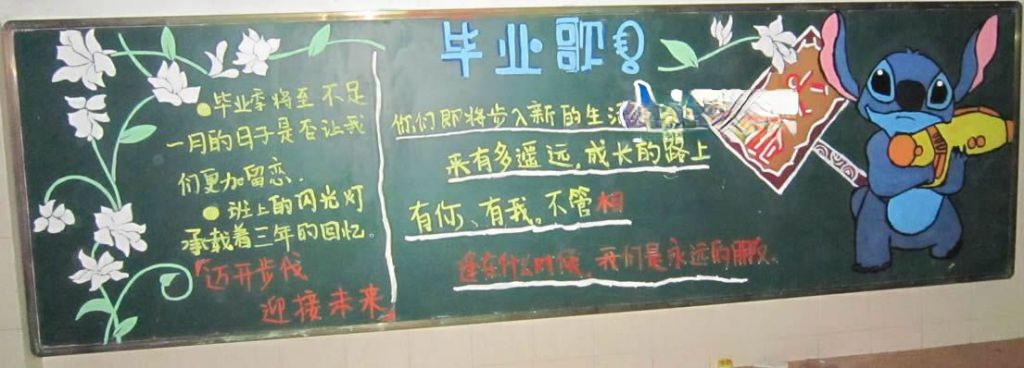 毕业歌
●毕业季将至 不足
一月的日子是否让我
们更加留恋.
●班上的闪光灯
承载着三年的回忆。
『迈开步伐
迎接未来
你们即将步入新的生活
来有多遥远,成长的路上
有你、有我。不管相
逢在什么时候,我们是永远的朋友。